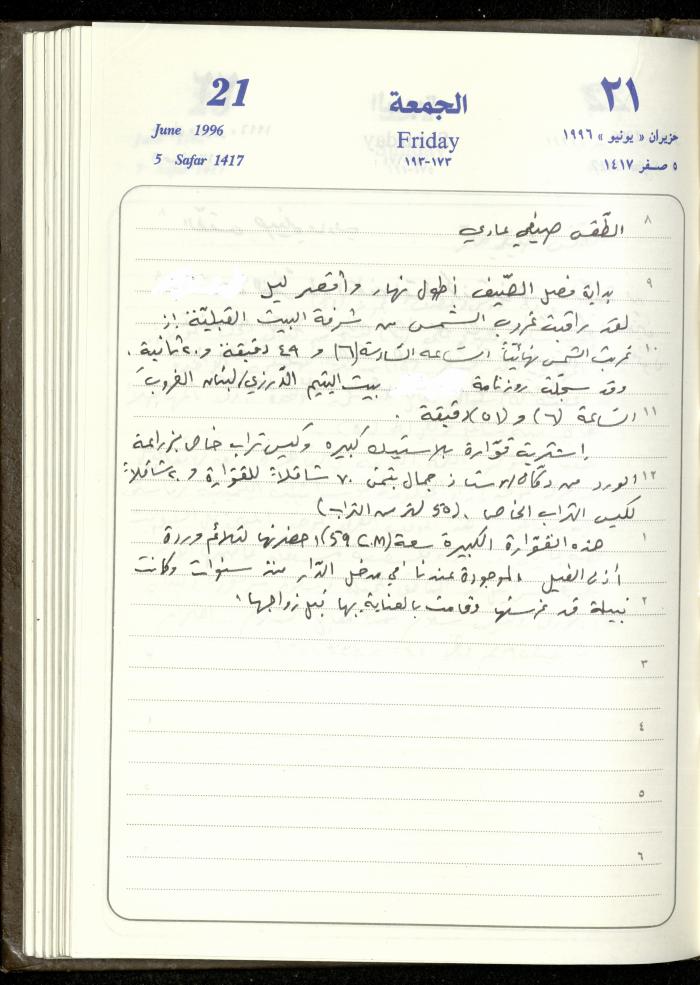 21 الجمعة ٢١
June 1996 Friday حزيران « يونيو » ١٩٩٦
5 Safar 1417 ١٧٣-١٩٣ ٥ صفر ١٤١٧
٨ الطّقس صيفي عادي
٩ بداية فصل الصّيف أطول نهار وأقصر ليل
لقد راقبت غروب الشمس من شرفة البيت القبليّة إذ
١٠ غربت الشمس نهائيّاً السّاعة السّادسة (٦) و ٤٩ دقيقة و ٢٠ ثانية .
وقد سجلّة روزنامة بيت اليتيم الدّرزي/لبنان الغروب
١١ السّاعة (٦) و (٥١) دقيقة .
إشتريت قوّارة بلاستيك كبيره وكيس تراب خاص بزراعة
١٢ الورد من دكّان الاستاذ جمال بثمن ٧٠ شاقلاً للقوّارة و ٢٠ شاقلاً
لكيس التراب الخاص . (50 لتر من التراب)
١ هذه القوّارة الكبيرة سعة (59 C.M) احضرتها لتلائم وردة
أذن الفيل الموجودة عندنا في مدخل الدّار منذ سنوات وكانت
٢ نبيلة قد غرستها وقامت بالعناية بها قبل زواجها .
٣
٤
٥
٦